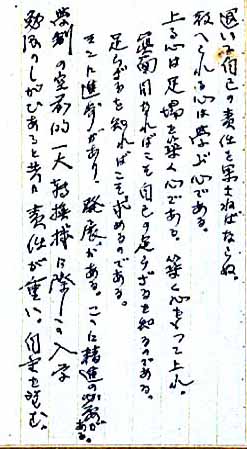 互いに自己の責任を果さねばならぬ。
教へられる心は学ぶ心である。
上る心は足場を築く心である。築く心をもつて上れ。
真面目なればこそ自己の足らざるを知るのである。
足らざるを知ればこそ求めるのである。
そこに進歩があり、発展がある。こゝに精進の必要がある。
学制の空前的一大転換機に際しての入学
勉励のしがひあると共に責任が重い。自重を望む。